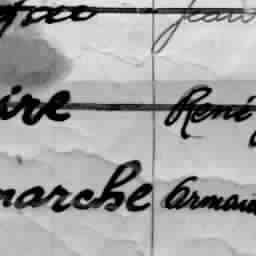 Jean
ire René
marche Arman